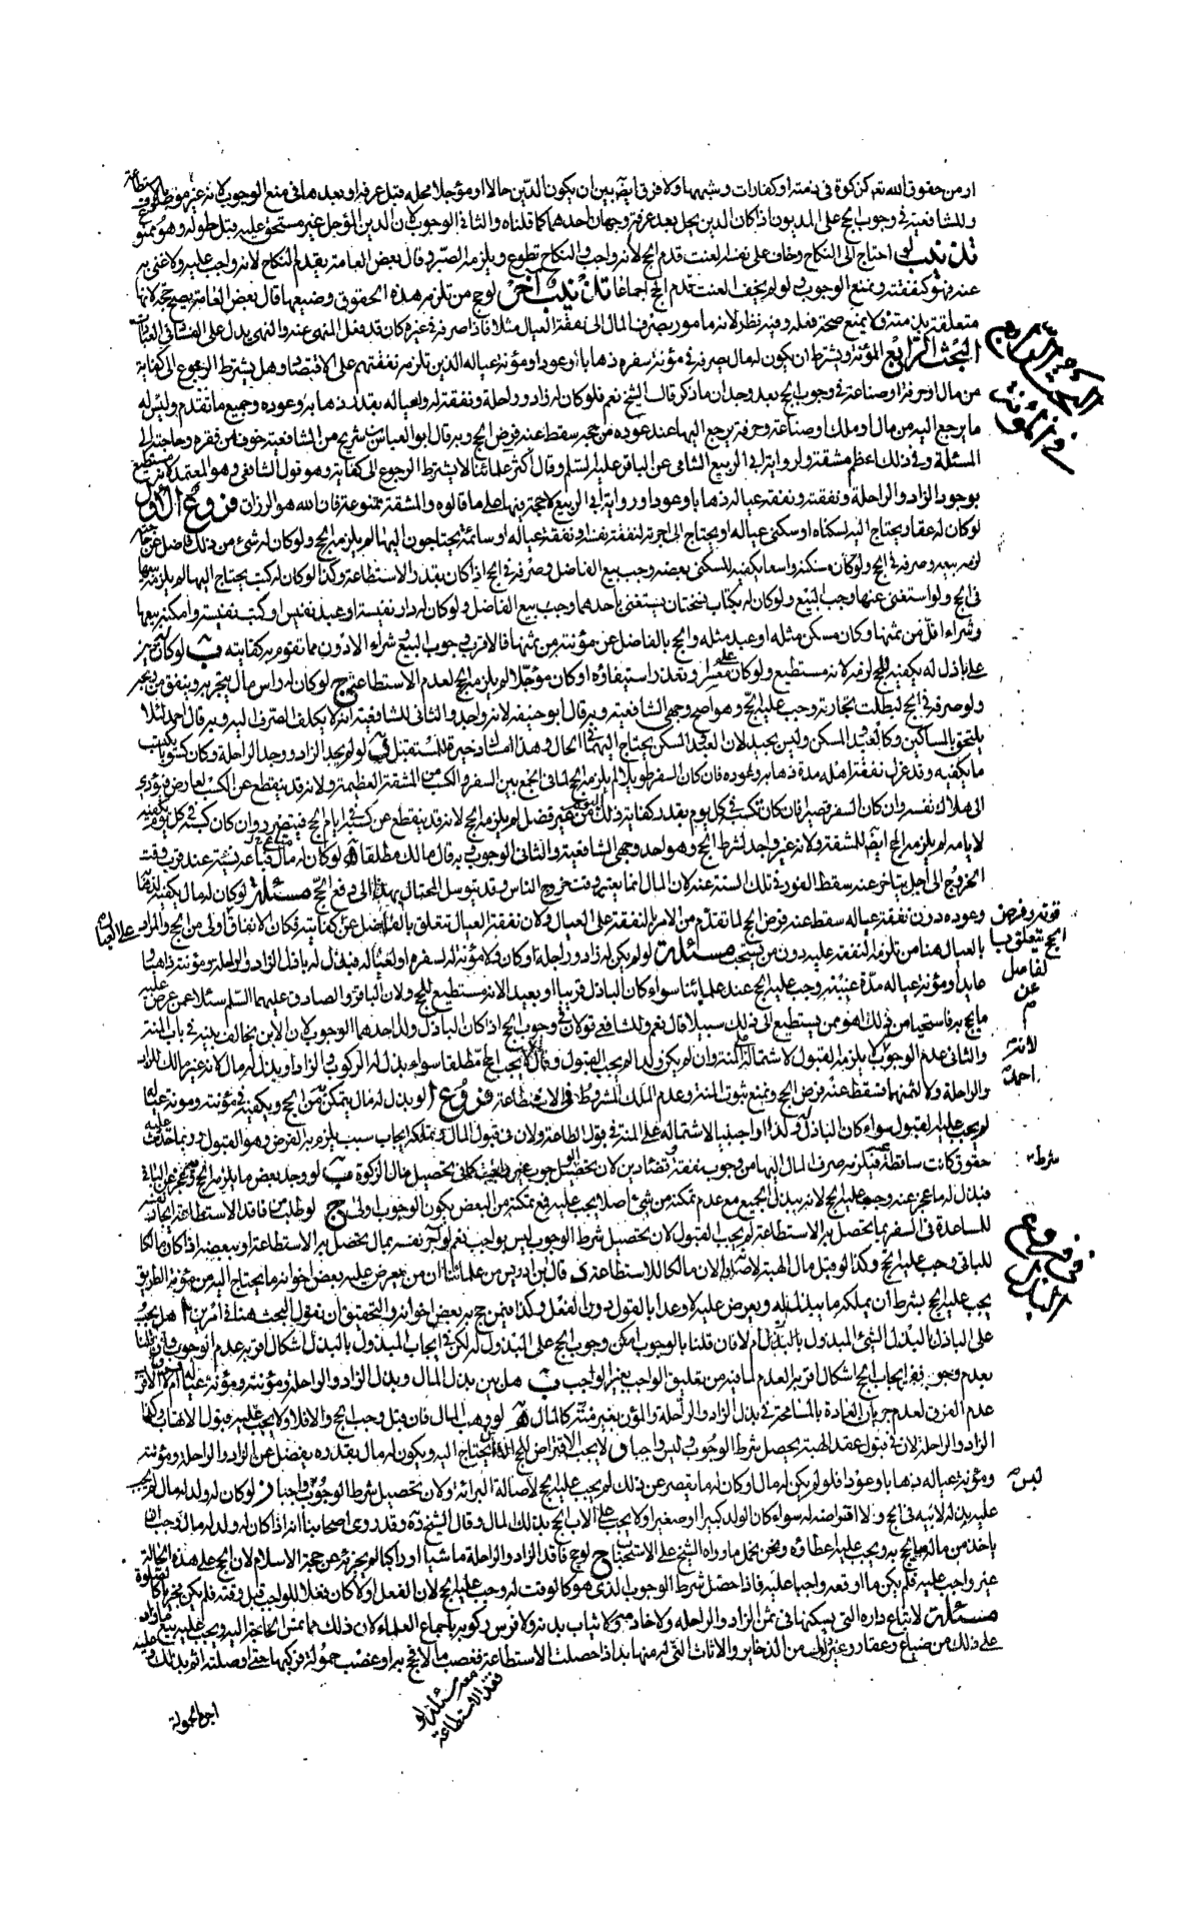 او من حقوق الله تعم كزكوة فى ذمته او كفارات وشبهها ولا فرق ايضً بين ان يكون الدين حالا او مؤجلا محله قبل عرفة او بعدها فى منع الوجوب لانه غير موصوف بالاستطاعة
وللشافعية فى وجوب الحج على المديون اذا كان الدين يحل بعد عرفة وجهان احدهما كما قلناه والثانى الوجوب لان الدين المؤجل غير مستحق عليه قبل حلوله وهو ممنوع
تذنيب لو احتاج الى النكاح وخاف على نفسه العنت قدم الحج لانه واجب والنكاح تطوع ويلزمه الصبر وقال بعض العامة يقدم النكاح لانه واجب عليه ولا غنى به
عنه فهو كنفقته ويمنع الوجوب ولو لم يخف العنت قدم الحج اجماعا تذنيب آخر لو حج من تلزمه هذه الحقوق وضيعها قال بعض العامة يصح حجه لانها
متعلقة بذمته فلا يمنع صحة فعله وفيه نظر لانه مامور بصرف المال الى نفقة العيال مثلا فاذا صرفه فى غيره كان قد فعل المنهى عنه والنهى يدل على الفساد فى العبادات
البحث الرابع المؤنة ويشترط ان يكون له مال يصرفه فى مؤنة سفره ذهابا وعودا ومؤنة عياله الذين تلزمه نفقتهم على الاقتصاد وهل يشترط الرجوع الى كفاية
من مال او حرفة او صناعة فى وجوب الحج بعد وجدان ما ذكر قال الشيخ نعم فلو كان له زاد وراحلة ونفقة له ولعياله بقدر ذهابه وعوده وجميع ما تقدم وليس له
ما يرجع اليه من مال او ملك او صناعة وحرفة يرجع اليها عند عوده من حجه سقط عنه فرض الحج وبه قال ابو العباس بن شريح من الشافعية خوف من فقره وحاجته الى
المسئلة وفى ذلك اعظم مشقة ولرواية ابى الربيع الشامى عن الباقر عليه السلم وقال اكثر علمائنا لا يشترط الرجوع الى كفاية وهو قول الشافعى وهو المعتمد لانه مستطيع
بوجود الزاد والراحلة ونفقته ونفقة عياله ذهابا وعودا ورواية ابى الربيع لا حجة فيها على ما قالوه والمشقة ممنوعة فان الله هو الرزاق فروع الاول
لو كان له عقار يحتاج اليه لسكناه او سكنى عياله او يحتاج الى اجرته لنفقة نفسه ونفقة عياله او سائمة يحتاجون اليها لم يلزمه الحج ولو كان له شئ من ذلك فاضل عن حاجته
لزمه بيعه وصرفه فى الحج ولو كان مسكنه واسعا يكفيه للسكنى بعضه وجب بيع الفاضل وصرفه فى الحج اذا كان بقدر الاستطاعة وكذا لو كان له كتب يحتاج اليها لم يلزمه بيعها
فى الحج ولو استغنى عنها وجب البيع ولو كان له بكتاب نسختان يستغنى باحدهما وجب بيع الفاضل ولو كان له دار نفيسة او عبد نفيس او كتب نفيسة وامكنه بيعها
وشراء اقل من ثمنها وكان مسكن مثله او عبد مثله والحج بالفاضل عن مؤنته من ثمنها فالاقرب وجوب البيع وشراء الادون مما تقوم به كفايته ب لو كان له دين
على باذل له يكفيه للحج لزمه لانه مستطيع ولو كان على معسر او تعذر استيفاؤه او كان مؤجلا لم يلزمه الحج لعدم الاستطاعة ج لو كان له راس مال يتجر به وينفق من ربحه
ولو صرفه فى الحج لبطلت تجارته وجب عليه الحج وهو اصح وجهى الشافعية وبه قال ابو حنيفة لانه واجد والثانى للشافعية انه لا يكلف الصرف اليه وبه قال احمد لئلا
يلتحق بالمساكين وكالعبد والمسكن وليس بجيد لان العبد والمسكن يحتاج اليهما فى الحال وهذا انما يتخذ ذخيرة للمستقبل د لو لم يجد الزاد ووجد الراحلة وكان كسوبا يكتسب
ما يكفيه وقد عزل نفقة اهله مدة ذهابه وعوده فان كان السفر طويلا لم يلزمه الحج لما فى الجمع بين السفر والكسب من المشقة العظيمة ولانه قد ينقطع عن الكسب لعارض فيؤدى
الى هلاك نفسه وان كان السفر قصيرا فان كان تكسبه فى كل يوم بقدر كفاية ذلك اليوم من غير فضل لم يلزمه الحج لانه قد ينقطع عن كسبه فى ايام الحج فيتضرر وان كان كسبه فى كل يوم يكفيه
لايامه لم يلزمه الحج ايضً للمشقة ولانه غير واجد لشرط الحج وهو احد وجهى الشافعية والثانى الوجوب وبه قال مالك مطلقا ه لو كان له مال فباعه نسيئة عند قرب وقت
الخروج الى اجل يتاخر عنه سقط الفور فى تلك السنة عنه لان المال انما يعتبر وقت خروج الناس وقد يتوسل المحتال بهذا الى دفع الحج مسئلة لو كان له مال يكفيه لذهابه
وعوده دون نفقة عياله سقط عنه فرض الحج لما تقدم من الامر بالنفقة على العيال ولان نفقة العيال تتعلق بالفاضل عن كفايته فكان الانفاق اولى من الحج والمراد
بالعيال هنا من تلزمه النفقة عليه دون من يستحب مسئلة لو لم يكن له زاد وراحلة او كان ولا مؤنة له لسفره او لعياله فبذل له باذل الزاد والراحلة ومؤنته ذاهبا
عايدا ومؤنة عياله مدة غيبته وجب عليه الحج عند علمائنا سواء كان الباذل قريبا او بعيدا لانه مستطيع للحج ولان الباقر والصادق عليهما السلم سئلا عمن عرض عليه
ما يحج به فاستحيا من ذلك اهو ممن يستطيع الى ذلك سبيلا قال نعم وللشافعى قولان فى وجوب الحج اذا كان الباذل ولدا احدهما الوجوب لان الابن يخالف غيره فى باب المنة
والثانى عدم الوجوب لا يلزمه القبول لاشتماله على المنة وان لم يكن ولدا لم يجب القبول وقال لا يجب الحج مطلقا سواء بذل له الركوب والزاد او بذل له مال لانه غير مالك للزاد
والراحلة ولا لثمنهما فسقط عنه فرض الحج ونمنع ثبوت المنة وعدم الملك المشروط فى الاستطاعة فروع ا لو بذل له مال يتمكن به من الحج ويكفيه فى مؤنته ومؤنة عياله
لم يجب عليه القبول سواء كان الباذل ولدا او اجنبيا لاشتماله على المنة فى قول الطاعة ولان فى قبول المال وتملكه ايجاب سبب يلزم به الفرض وهو القبول وربما حدثت عليه
حقوق كانت ساقطة فيلزمه صرف المال اليها من وجوب نفقة وقضاء دين لان تحصيل شرط الوجوب غير واجب كما فى تحصيل مال الزكوة ب لو وجد بعض ما يلزمه الحج وعجز عن الباقى
فبذل له ما عجز عنه وجب عليه الحج لانه ببذل الجميع مع عدم تمكنه من شئ اصلا يجب عليه فمع تمكنه من البعض يكون الوجوب اولى ج لو طلب من فاقد الاستطاعة ايجار نفسه
للمساعدة فى السفر بما يحصل به الاستطاعة لم يجب القبول لان تحصيل شرط الوجوب ليس بواجب نعم لو آجر نفسه بمال يحصل به الاستطاعة او ببعضه اذا كان مالكا
للباقى وجب عليه الحج وكذا لو قبل مال الهبة لانه صار الان مالكا للاستطاعة د قال ابن ادريس من علمائنا ان من يعرض عليه بعض اخوانه ما يحتاج اليه من مؤنة الطريق
يجب عليه الحج بشرط ان يملكه ما يبذله له ويعرض عليه لا وعدا بالقول دون الفعل وكذا فيمن حج به بعض اخوانه والتحقيق ان نقول البحث هنا فى امرين ا هل يجب
على الباذل بالبذل الشئ المبذول بالبذل ام لا فان قلنا بالوجوب امكن وجوب الحج على المبذول له لكن فى ايجاب المبذول بالبذل اشكال اقربه عدم الوجوب وان قلنا
بعدم وجوبه ففى ايجاب الحج اشكال اقربه العدم لما فيه من تعليق الواجب بغير الواجب ب هل بين بذل المال وبذل الزاد والراحلة ومؤنته ومؤنة عياله فرق ام لا الاقرب
عدم الفرق لعدم جريان العادة بالمسامحة فى بذل الزاد والراحلة والمؤن بغير منة كالمال ه لو وهب المال فان قبل وجب الحج والا فلا ولا يجب عليه قبول الاتهاب وكذا
الزاد والراحلة لان فى قبول عقد الهبة تحصيل شرط الوجوب وليس واجبا و لا يجب الاقتراض للحج الا ان يحتاج اليه ويكون له مال بقدره يفضل عن الزاد والراحلة ومؤنته
ومؤنة عياله ذهابا وعودا فلو لم يكن له مال او كان له ما يقصر عن ذلك لم يجب عليه الحج لاصالة البراءة ولان تحصيل شرط الوجوب واجبا ز لو كان لولده مال لم يجب
عليه بذله لابيه فى الحج ولا اقتراضه له سواء كان الولد كبيرا او صغيرا ولا يجب على الاب الحج بذلك المال وقال الشيخ ره وقد روى اصحابنا انه اذا كان له ولد له مال وجب ان
ياخذ من ماله ما يحج به ويجب عليه اعطاؤه ونحن نحمل ما رواه الشيخ على الاستحباب ح لو حج فاقد الزاد والراحلة ماشيا او راكبا لم يجزئه عن حجة الاسلام لان الحج على هذه الحالة
غير واجب عليه فلم يكن ما اوقعه واجبا عليه فاذا حصل شرط الوجوب الذى هو كالوقت له وجب عليه الحج لان الفعل اولا كان نفلا للواجب قبل وقته فلم يكن مجزيا كالصلوة
مسئلة لا تباع داره التى يسكنها فى ثمن الزاد والراحلة ولا خادمه ولا ثياب بدنه ولا فرس ركوبه باجماع العلماء لان ذلك مما تمس الحاجة اليه ويجب عليه بيع ما زاد
على ذلك من ضياع وعقار وغير ذلك من الذخاير والاثاث التى له منها بد اذا حصلت الاستطاعة فغصب مالا فحج به او غصب حمولة فركبها حتى اوصلته اثم بذلك وعليه
اجرة الحمولة
البحث الرابع فى المؤنة
لانه
شرط
فى فروع البذل
ليس
مسئلة لو فقد الاستطاعة